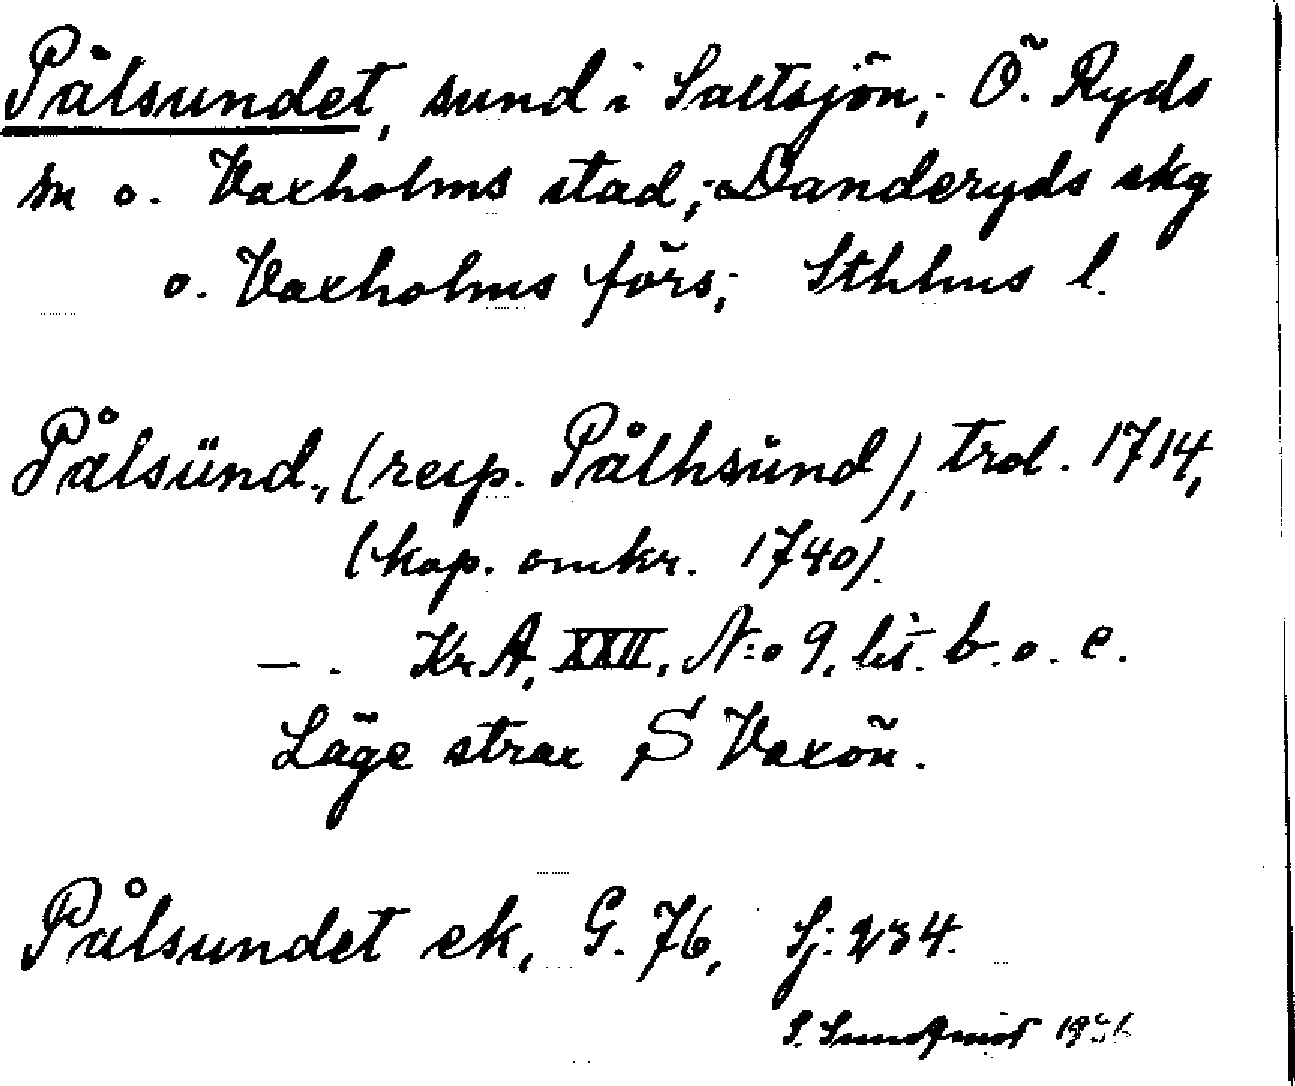 Pålsundet, sund i Saltsjön; Ö. Ryds
sn o. Vaxholms stad; Danderyds skg
o. Vaxholms förs; Sthlms l.
Pålsünd, (resp. Pålhsünd), trol. 1714,
(kop. omkr. 1740).
— . KrA, XXII, N:o 9, lit. b. o. c.
Läge strax S Vaxön.
Pålsundet ek, G. 76, Sj: 234.
S. Sundqvist 1936